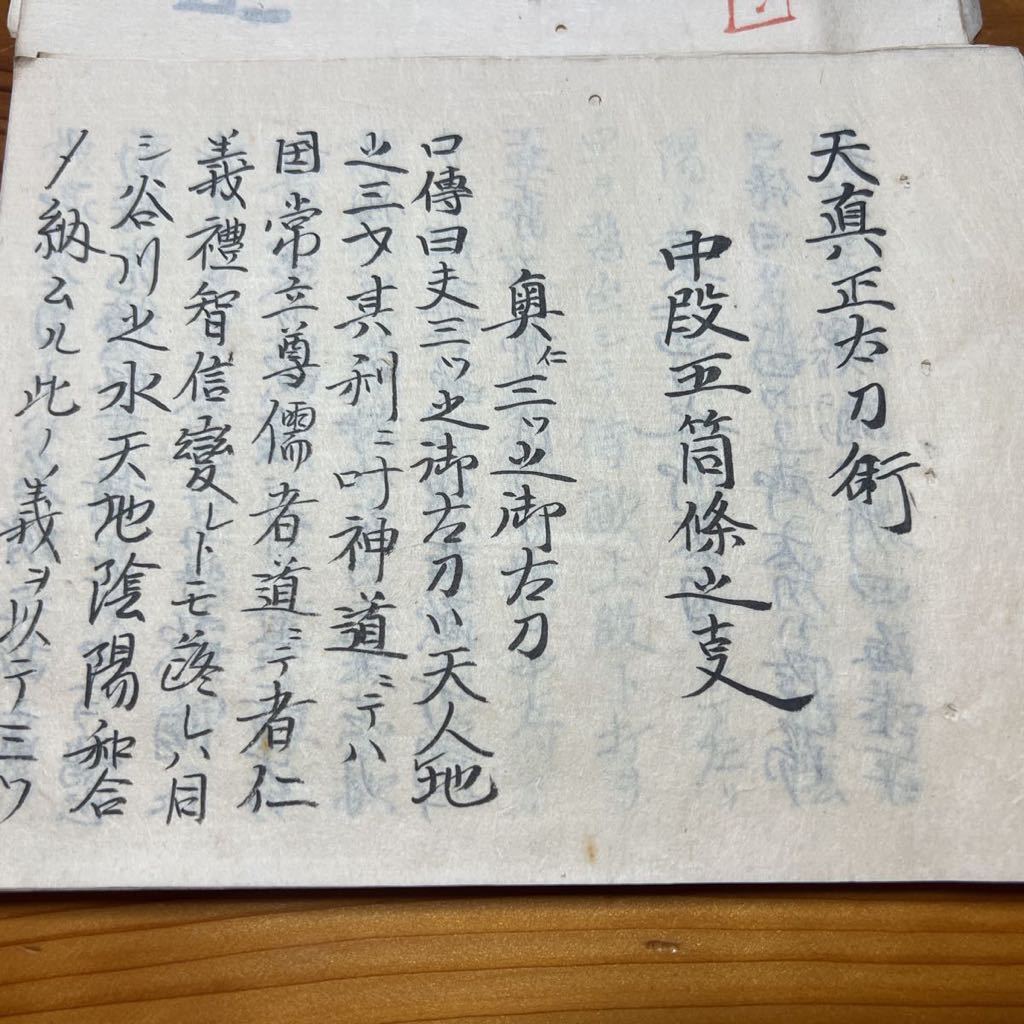 天真正古刀術
中段五箇條之叓
奥仁三ッ之御太刀
口傳曰夫三ッ之御太刀ハ天人地
之三才其利ニ叶神道ニテハ
国常立尊儒者道ニテ者仁
義禮智信變レトモ落レハ同
シ谷川之水天地陰陽和合
ノ納ムル此ノ義ヲ以テ三ツ